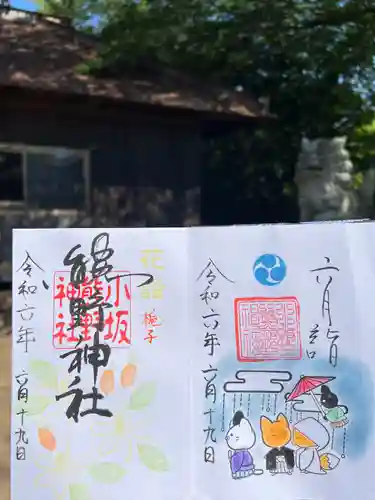 花詣
梔子
熊野神社
小坂
熊野
神社
令和六年
六月十九日
六月詣
令和六年
六月十九日